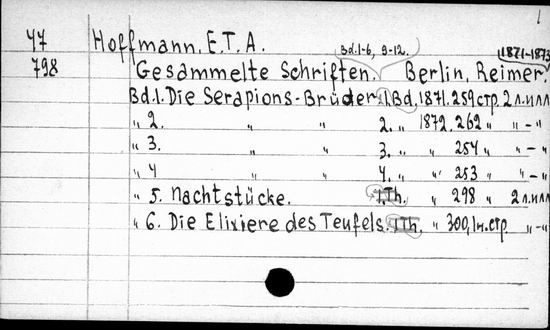 47 Hoffmann, E.T.A. Bd.1-6, 9-12. (1871-1873)
798 Gesammelte Schriften. Berlin, Reimer,
Bd.1. Die Serapions-Brüder. 1.Bd. 1871. 259 стр. 2 л.илл
" 2. " " 2. " 1872. 262 " " - "
" 3. " " 3. " " 254 " " - "
" 4 " " 4. " " 253 " " - "
" 5. Nachtstücke. 1.Th. " 298 " 2 л.илл
" 6. Die Elixiere des Teufels. 1Th. " 300, 1н.стр " - "